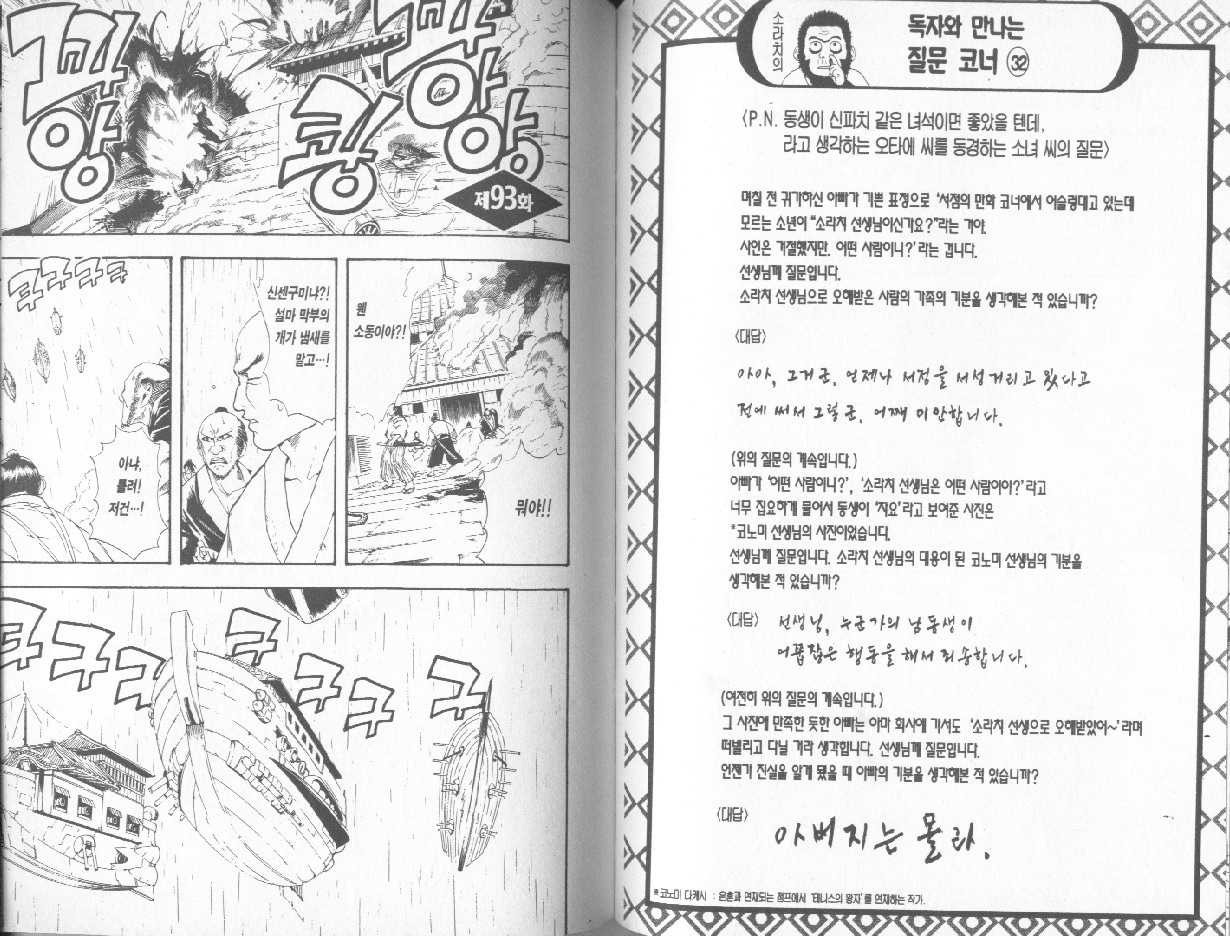 꽈앙
쾅
콰앙
제93화
웬
소동이야?!
뭐야!!
신센구미냐?!
설마 막부의
개가 냄새를
맡고…!
쿠구구구
아냐,
틀려!
저건…!
쿠구구구구구구
소라치의
독자와 만나는
질문 코너 32
〈P.N. 동생이 신파치 같은 녀석이면 좋았을 텐데,
라고 생각하는 오타에 씨를 동경하는 소녀 씨의 질문〉
며칠 전 귀가하신 아빠가 기쁜 표정으로 '서점의 만화 코너에서 어슬렁대고 있는데
모르는 소년이 "소라치 선생님이신가요?"라는 거야.
사인은 거절했지만. 어떤 사람이니?' 라는 겁니다.
선생님께 질문입니다.
소라치 선생님으로 오해받은 사람의 가족의 기분을 생각해본 적 있습니까?
〈대답〉
아아, 그거군. 언제나 서점을 서성거리고 있다고
전에 써서 그렇군. 어째 미안합니다.
(위의 질문의 계속입니다.)
아빠가 '어떤 사람이니?', '소라치 선생님은 어떤 사람이야?'라고
너무 집요하게 물어서 동생이 '자요'라고 보여준 사진은
*코노미 선생님의 사진이었습니다.
선생님께 질문입니다. 소라치 선생님의 대용이 된 코노미 선생님의 기분을
생각해본 적 있습니까?
〈대답〉 선생님, 누군가의 남동생이
어쭙잖은 행동을 해서 죄송합니다.
(여전히 위의 질문의 계속입니다.)
그 사진에 만족한 듯한 아빠는 아마 회사에 가서도 '소라치 선생으로 오해받았어~'라며
떠벌리고 다닐 거라 생각합니다. 선생님께 질문입니다.
언젠가 진실을 알게 됐을 때 아빠의 기분을 생각해본 적 있습니까?
〈대답〉
아버지는 몰라.
*코노미 다케시 : 은혼과 연재되는 점프에서 '테니스의 왕자'를 연재하는 작가.